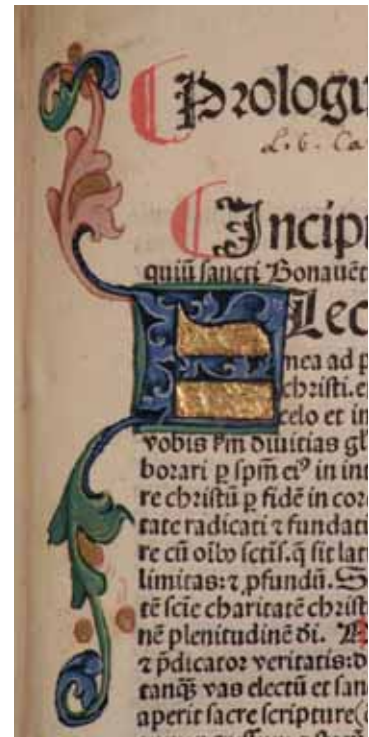 Prologu
L. b. Ca
Incipi
quiū sancti Bonauēt
Flec
mea ad p
christi. ex
celo et in
vobis ẜm diuitias gl
borari ꝑ spm̄ eiꝰ in int
re christū ꝑ fidē in cor
tate radicati ⁊ fundati
re cū oībꝰ sctīs. q̄ sit lati
limitas: ⁊ ꝓfundū. S
tē sciē charitatē christ
nē plenitudinē di.
⁊ p̄dicator veritatis: d
tanq̄ vas electū et san
aperit sacre scripture (